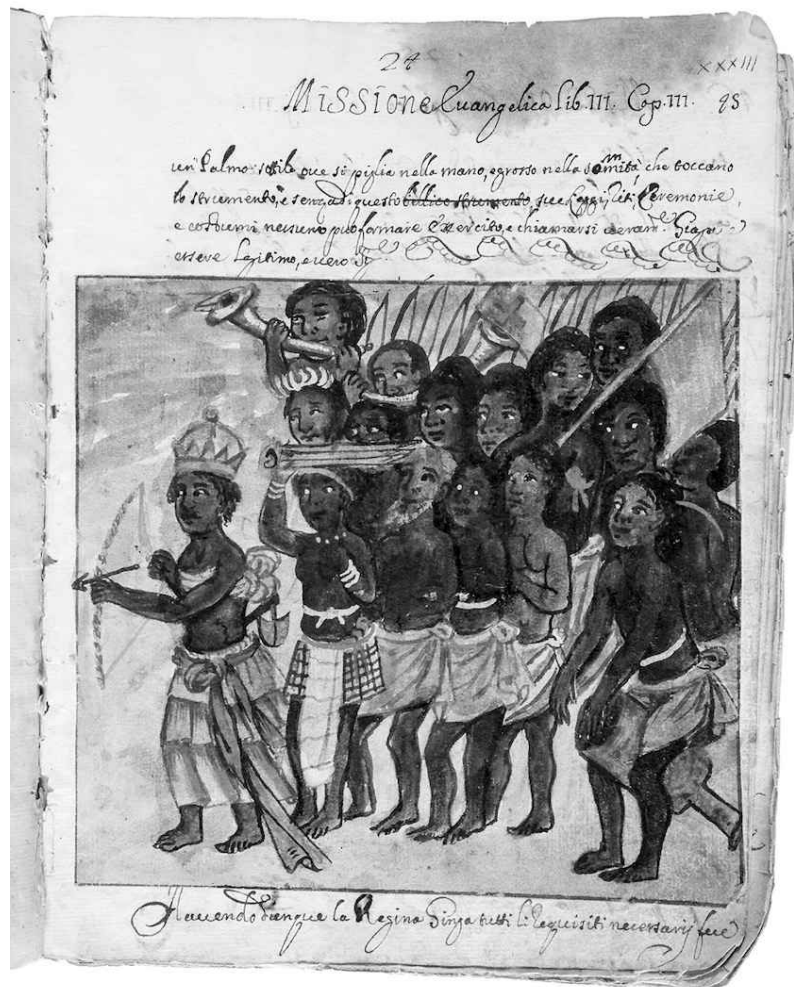 24
XXXIII
MISSIONe Euangelica lib. III. Cap. III. 95
un' Palmo sottile oue si piglia nella mano, e grosso nella somità che toccano
lo strumento, e senza di questo bellico strumento, sue Leggi, Riti, Ceremonie,
e costumi, nessuno può formare Exercito, e chiamarsi
essere legitimo, e uero
Hauendo dunque la Regina Ginga tutti li Requisiti necessarij fece